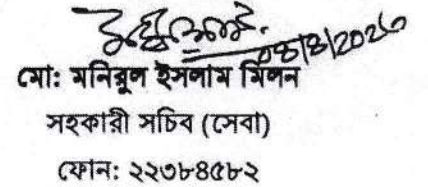 ০৪/৪/2026
মো: মনিরুল ইসলাম মিলন
সহকারী সচিব (সেবা)
ফোন: ২২৩৮৪৫৮২